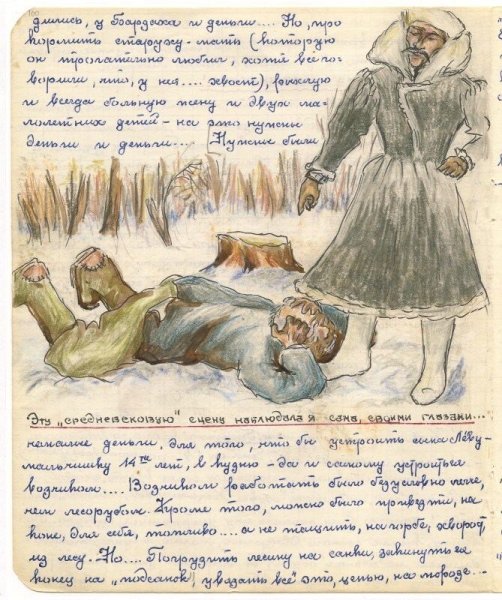 дились, у Бардаха и деньги.... Но, про
кормить старуху-мать (которую
он трогательно любил, хотя все го-
ворили, что, у нея.... хвост), рыхлую
и всегда больную жену и двух ма-
лолетних детей - на это нужны
деньги и деньги.... Нужны были
Эту „средневековую" сцену наблюдала я сама, своими глазами...
немалые деньги, для того, что бы устроить сына Лёву-
мальчишку 14ти лет, в кузню - да и самому устроиться
возчиком.... Возчиком работать было безусловно легче,
чем лесорубом. Кроме того, можно было привезти, на
коне, для себя, топливо.... а не тащить, на горбе, хворост,
из лесу. Но.... Погрузить лесину на санки, закинуть её
конец на „подсанок", увязать всё это, цепью, на морозе -